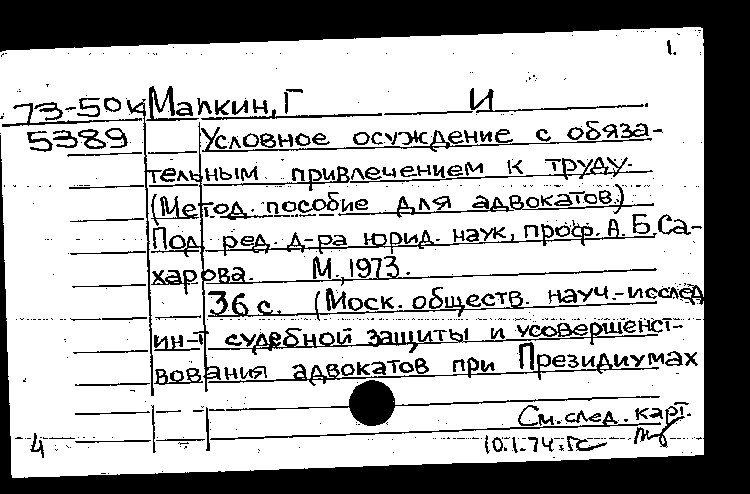 1.
73-50к Малкин, Г И
5389 Условное осуждение с обяза-
тельным привлечением к труду.
(Метод. пособие для адвокатов.)
Под ред. д-ра юрид. наук, проф. А.Б.Са-
харова. М., 1973.
36 с. (Моск. обществ. науч.-исслед
ин-т судебной защиты и усовершенст-
вования адвокатов при Президиумах
См. след. карт.
4 10.1.74.